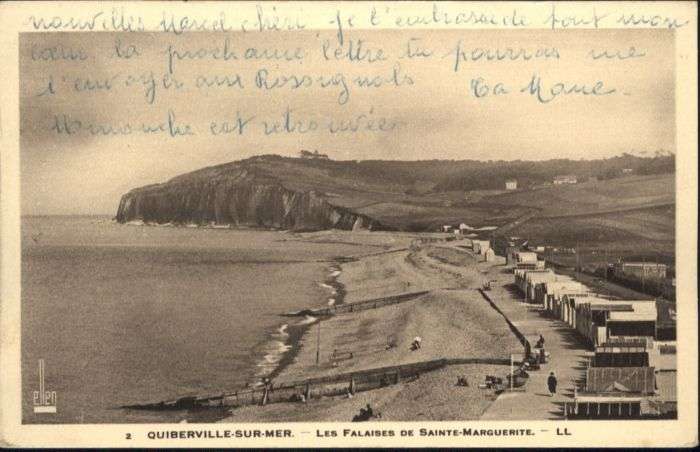 nouvelles Marcel chéri, je t'embrasse de tout mon
cœur la prochaine lettre tu pourras me
l'envoyer aux Rossignols
Ta Mane.
Mimouche est retrouvée
ellen
2 QUIBERVILLE-SUR-MER. — LES FALAISES DE SAINTE-MARGUERITE. — LL